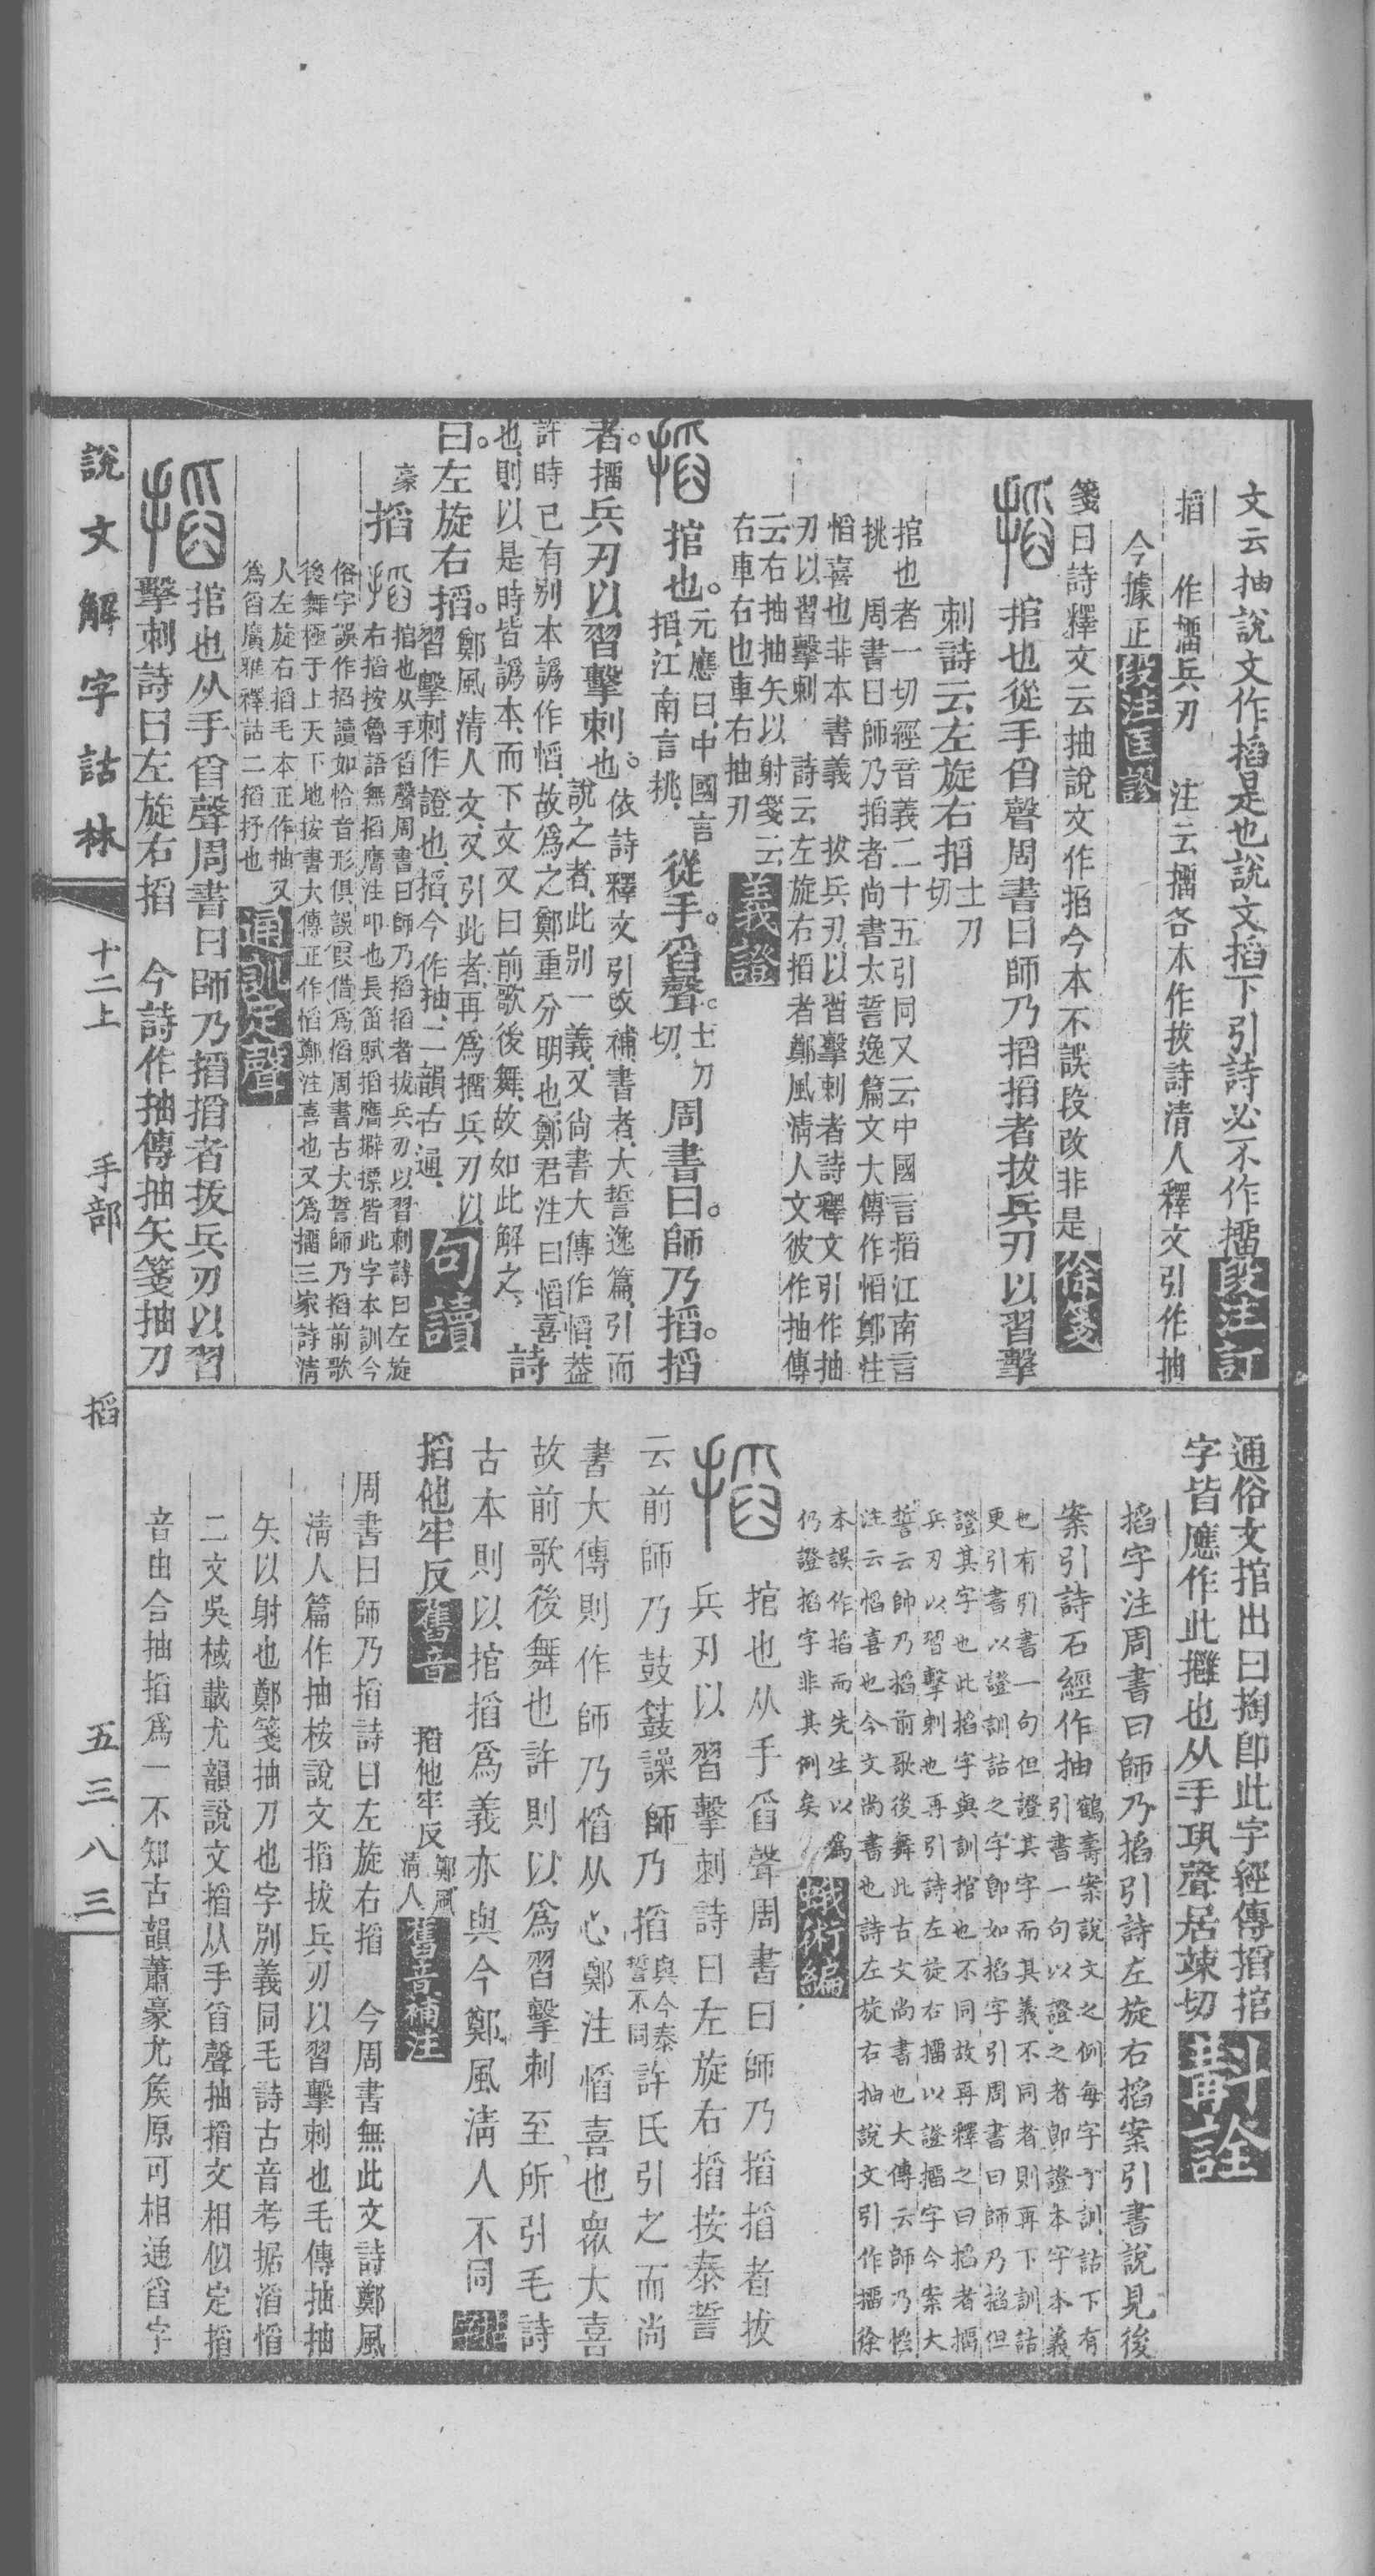 文云抽說文作搯是也說文搯下引詩必不作㩅段注訂
搯　作㩅兵刃　注云㩅各本作拔詩清人釋文引作抽
今據正段注匡謬
箋曰詩釋文云抽說文作搯今本不誤段改非是徐箋
搯　捾也從手舀聲周書曰師乃搯搯者拔兵刃以習擊
刺詩云左旋右搯土刀切
捾也者一切經音義二十五引同又云中國言搯江南言
挑　周書曰師乃搯者尚書太誓逸篇文大傳作慆鄭注
慆喜也非本書義　拔兵刃以習擊刺者詩釋文引作抽
刃以習擊刺　詩云左旋右搯者鄭風清人文彼作抽傳
云右抽抽矢以射箋云
右車右也車右抽刃　義證
搯　捾也。元應曰、中國言搯、江南言挑、從手。舀聲。土刀切、周書曰。師乃搯。搯
者。㩅兵刃以習擊刺也。依詩釋文引改補、書者、大誓逸篇、引而說之者、此別一義、又尚書大傳作慆、葢
許時已有別本譌作慆、故爲之鄭重分明也、鄭君注曰、慆喜
也、則以是時皆譌本、而下文又曰、前歌後舞、故如此解之、詩
曰。左旋右搯。鄭風清人文、又引此者、再爲㩅兵刃以習擊刺作證也、搯、今作抽、二韻古通、句讀
豪　搯　捾也从手舀聲周書曰師乃搯搯者拔兵刃以習刺詩曰左旋
右搯按魯語無搯膺注叩也長笛賦搯膺擗摽皆此字本訓今
俗字誤作掐讀如恰音形俱誤叚借爲慆周書古大誓師乃搯前歌
後舞極于上天下地按書大傳正作慆鄭注喜也又爲㩅三家詩清
人左旋右搯毛本正作抽又
爲舀廣雅釋詁二搯抒也　通訓定聲
搯　捾也从手舀聲周書曰師乃搯搯者拔兵刃以習
擊刺詩曰左旋右搯　今詩作抽傳抽矢箋抽刀
通俗文捾出曰掏卽此字經傳搯捾
字皆應作此攡也从手巩聲居竦切　斠詮
搯字注周書曰師乃搯引詩左旋右搯案引書說見後
案引詩石經作抽鶴壽案說文之例每字于訓詁下有引書一句以證之者卽證本字本義
也有引書一句但證其字而其義不同者則再下訓詁
更引書以證訓詁之字卽如搯字引周書曰師乃搯但
證其字也此搯字與訓捾也不同故再釋之曰搯者㩅
兵刃以習擊刺也再引詩左旋右㩅以證㩅字今案大
誓云師乃搯前歌後舞此古文尚書也大傳云師乃慆
注云慆喜也今文尚書也詩左旋右抽說文引作㩅徐
本誤作搯而先生以爲
仍證搯字非其例矣　蛾術編
搯　捾也从手舀聲周書曰師乃搯搯者拔
兵刃以習擊刺詩曰左旋右搯按泰誓
云前師乃鼓鼜譟師乃搯與今泰誓不同許氏引之而尚
書大傳則作師乃慆从心鄭注慆喜也衆大喜
故前歌後舞也許則以爲習擊刺至所引毛詩
古本則以捾搯爲義亦與今鄭風清人不同
搯他牢反舊音　搯他牢反鄭風清人舊音補注
周書曰師乃搯詩曰左旋右搯　今周書無此文詩鄭風
清人篇作抽桉說文搯拔兵刃以習擊刺也毛傳抽抽
矢以射也鄭箋抽刀也字別義同毛詩古音考据滔慆
二文吳棫載尤韻說文搯从手舀聲抽搯文相似定搯
音由合抽搯爲一不知古韻蕭豪尤矦原可相通舀字
說文解字詁林　十二上　手部　搯　五三八三